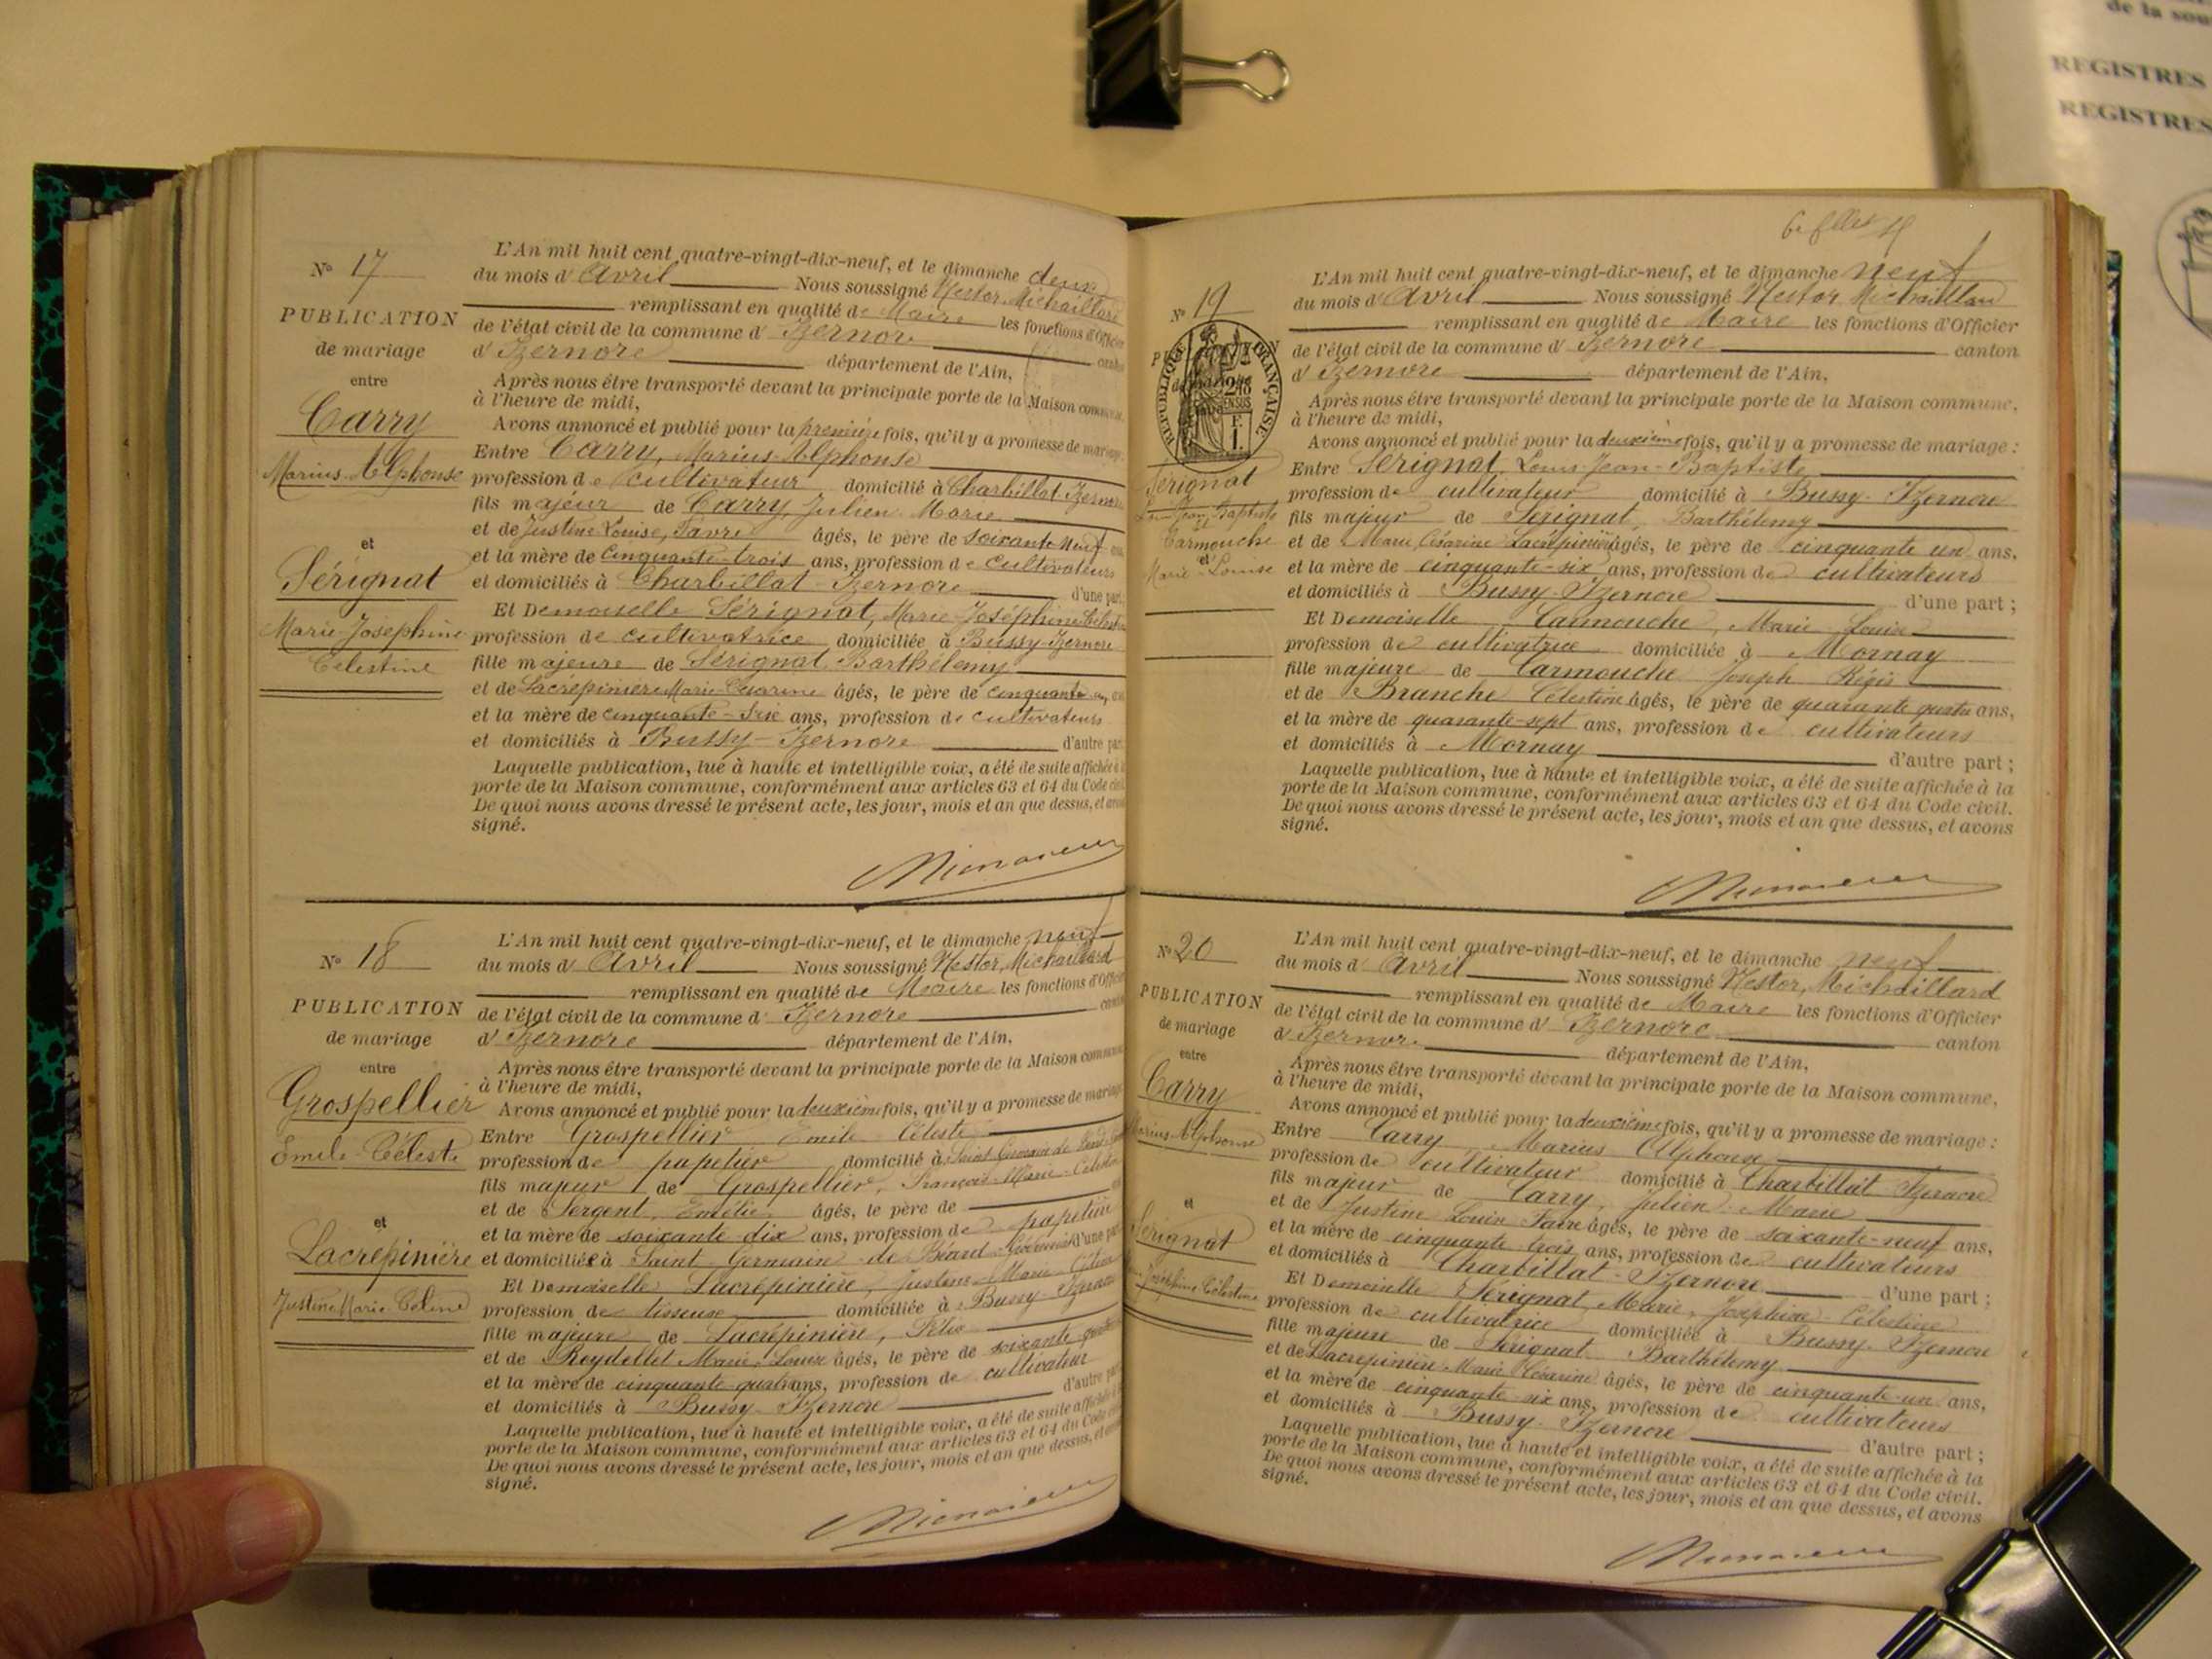 de la sou
REGISTRES
REGISTRES
N° 17
PUBLICATION
de mariage
entre
Carry
Marius-Alphonse
et
Sérignat
Marie-Joséphine
Célestine
L'An mil huit cent quatre-vingt-dix-neuf, et le dimanche deux
du mois d'Avril Nous soussigné Nestor, Michaillard
remplissant en qualité de Maire les fonctions d'Officier
de l'état civil de la commune d'Izernore
d'Izernore département de l'Ain,
Après nous être transporté devant la principale porte de la Maison commune,
à l'heure de midi,
Avons annoncé et publié pour la première fois, qu'il y a promesse de mariage
Entre Carry, Marius-Alphonse
profession de cultivateur domicilié à Charbillat-Izernore
fils majeur de Carry, Julien Marie
et de Justine Louise, Favre âgés, le père de soixante neuf ans
et la mère de cinquante-trois ans, profession de cultivateurs
et domiciliés à Charbillat-Izernore d'une part
Et Demoiselle Sérignat, Marie Joséphine Célestine
profession de cultivatrice domiciliée à Bussy-Izernore
fille majeure de Sérignat Barthélemy
et de Lacrépinière Marie Césarine âgés, le père de cinquante un
et la mère de cinquante-six ans, profession de cultivateurs
et domiciliés à Bussy-Izernore d'autre part
Laquelle publication, lue à haute et intelligible voix, a été de suite affichée à la
porte de la Maison commune, conformément aux articles 63 et 64 du Code civil
De quoi nous avons dressé le présent acte, les jour, mois et an que dessus, et avons
signé.
N° 18
PUBLICATION
de mariage
entre
Grospellier
Emile-Céleste
et
Lacrépinière
Justine Marie Céline
L'An mil huit cent quatre-vingt-dix-neuf, et le dimanche neuf
du mois d'Avril Nous soussigné Nestor, Michaillard
remplissant en qualité de Maire les fonctions d'Officier
de l'état civil de la commune d'Izernore canton
d'Izernore département de l'Ain,
Après nous être transporté devant la principale porte de la Maison commune
à l'heure de midi,
Avons annoncé et publié pour la deuxième fois, qu'il y a promesse de mariage
Entre Grospellier Emile Céleste
profession de papetier domicilié à Saint Germain de
fils majeur de Grospellier, François-Marie-Céleste
et de Sergent, Emélie âgés, le père de
et la mère de soixante dix ans, profession de papetière
et domiciliée à Saint Germain de Béard d'une part
Et Demoiselle Lacrépinière, Justine-Marie-Céline
profession de tisseuse domiciliée à Bussy-Izernore
fille majeure de Lacrépinière, Félix
et de Reydellet Marie-Louise âgés, le père de soixante quatre
et la mère de cinquante quatre ans, profession de cultivateur
et domiciliés à Bussy-Izernore d'autre part
Laquelle publication, lue à haute et intelligible voix, a été de suite affichée à la
porte de la Maison commune, conformément aux articles 63 et 64 du Code civil
De quoi nous avons dressé le présent acte, les jour, mois et an que dessus, et avons
signé.
N° 19
RÉPUBLIQUE FRANÇAISE
Sérignat
Louis Jean Baptiste
et
Carmouche
Marie-Louise
L'An mil huit cent quatre-vingt-dix-neuf, et le dimanche neuf
du mois d'Avril Nous soussigné Nestor, Michaillard
remplissant en qualité de Maire les fonctions d'Officier
de l'état civil de la commune d'Izernore canton
d'Izernore département de l'Ain,
Après nous être transporté devant la principale porte de la Maison commune,
à l'heure de midi,
Avons annoncé et publié pour la deuxième fois, qu'il y a promesse de mariage :
Entre Sérignat, Louis-Jean-Baptiste
profession de cultivateur domicilié à Bussy-Izernore
fils majeur de Sérignat, Barthélemy
et de Marie Césarine Lacrépinière âgés, le père de cinquante un ans,
et la mère de cinquante-six ans, profession de cultivateurs
et domiciliés à Bussy-Izernore d'une part ;
Et Demoiselle Carmouche, Marie Louise
profession de cultivatrice domiciliée à Mornay
fille majeure de Carmouche Joseph Régis
et de Branche Célestine âgés, le père de quarante quatre ans,
et la mère de quarante-sept ans, profession de cultivateurs
et domiciliés à Mornay d'autre part ;
Laquelle publication, lue à haute et intelligible voix, a été de suite affichée à la
porte de la Maison commune, conformément aux articles 63 et 64 du Code civil.
De quoi nous avons dressé le présent acte, les jour, mois et an que dessus, et avons
signé.
N° 20
PUBLICATION
de mariage
entre
Carry
Marius Alphonse
et
Sérignat
Joséphine Célestine
L'An mil huit cent quatre-vingt-dix-neuf, et le dimanche neuf
du mois d'Avril Nous soussigné Nestor, Michaillard
remplissant en qualité de Maire les fonctions d'Officier
de l'état civil de la commune d'Izernore canton
d'Izernore département de l'Ain,
Après nous être transporté devant la principale porte de la Maison commune,
à l'heure de midi,
Avons annoncé et publié pour la deuxième fois, qu'il y a promesse de mariage :
Entre Carry Marius Alphonse
profession de cultivateur domicilié à Charbillat Izernore
fils majeur de Carry, Julien Marie
et de Justine Louise Favre âgés, le père de soixante-neuf ans,
et la mère de cinquante trois ans, profession de cultivateurs
et domiciliés à Charbillat-Izernore d'une part ;
Et Demoiselle Sérignat, Marie, Joséphine-Célestine
profession de cultivatrice domiciliée à Bussy-Izernore
fille majeure de Sérignat Barthélemy
et de Lacrépinière Marie Césarine âgés, le père de cinquante-un ans,
et la mère de cinquante six ans, profession de cultivateurs
et domiciliés à Bussy-Izernore d'autre part ;
Laquelle publication, lue à haute et intelligible voix, a été de suite affichée à la
porte de la Maison commune, conformément aux articles 63 et 64 du Code civil.
De quoi nous avons dressé le présent acte, les jour, mois et an que dessus, et avons
signé.